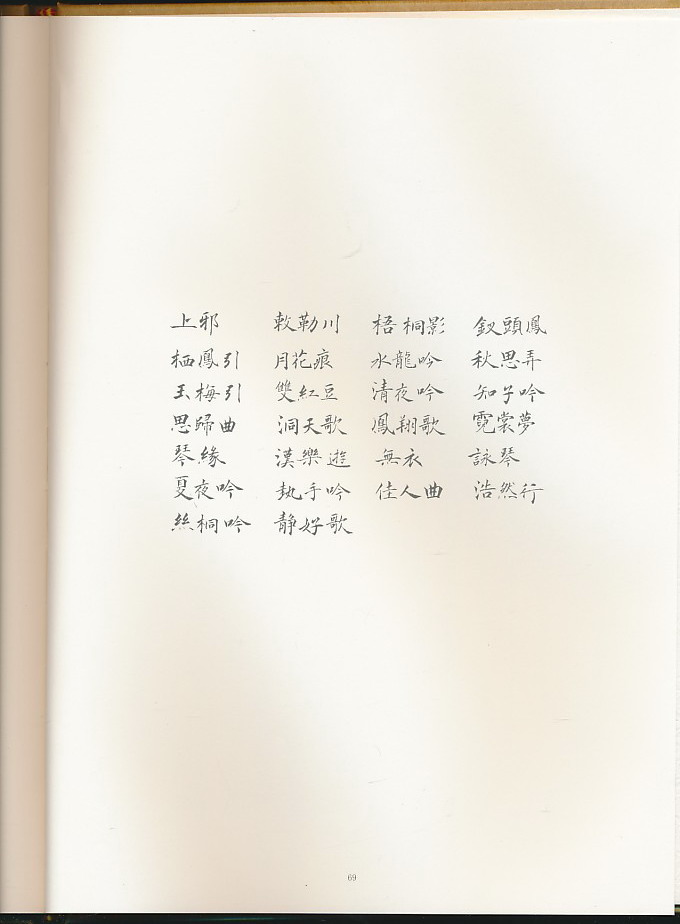 上邪 敕勒川 梧桐影 釵頭鳳
栖鳳引 月花痕 水龍吟 秋思弄
玉梅引 雙紅豆 清夜吟 知子吟
思歸曲 洞天歌 鳳翔歌 霓裳夢
琴緣 漢樂遊 無衣 詠琴
夏夜吟 執手吟 佳人曲 浩然行
絲桐吟 靜好歌
69